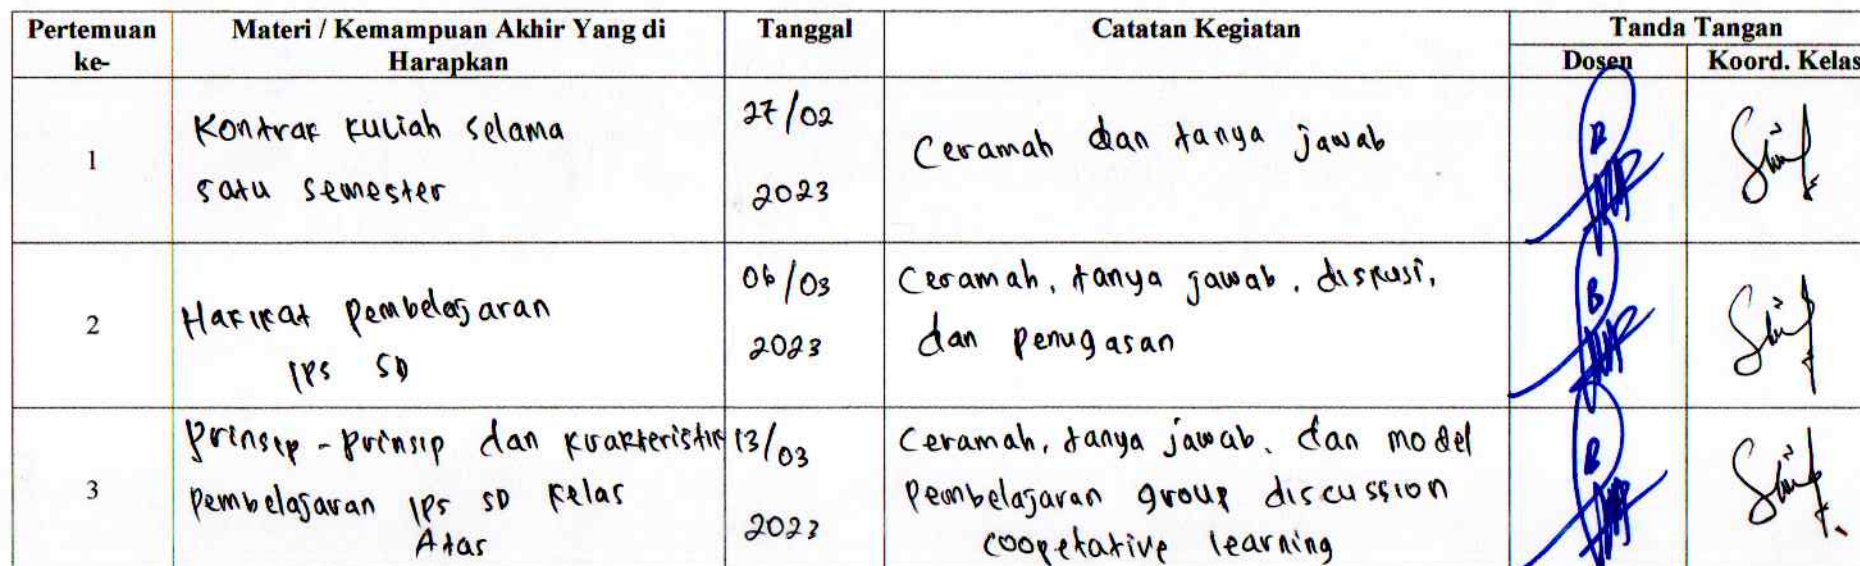 Pertemuan ke-
Materi / Kemampuan Akhir Yang di Harapkan
Tanggal
Catatan Kegiatan
Tanda Tangan
Dosen
Koord. Kelas
1
Kontrak kuliah selama
satu semester
27/02
2023
Ceramah dan tanya jawab
2
Hakikat Pembelajaran
IPS SD
06/03
2023
Ceramah, tanya jawab, diskusi,
dan penugasan
3
Prinsip-prinsip dan krakteristik
Pembelajaran IPS SD kelas
Atas
13/03
2023
Ceramah, tanya jawab, dan model
Pembelajaran group discussion
coopetative learning